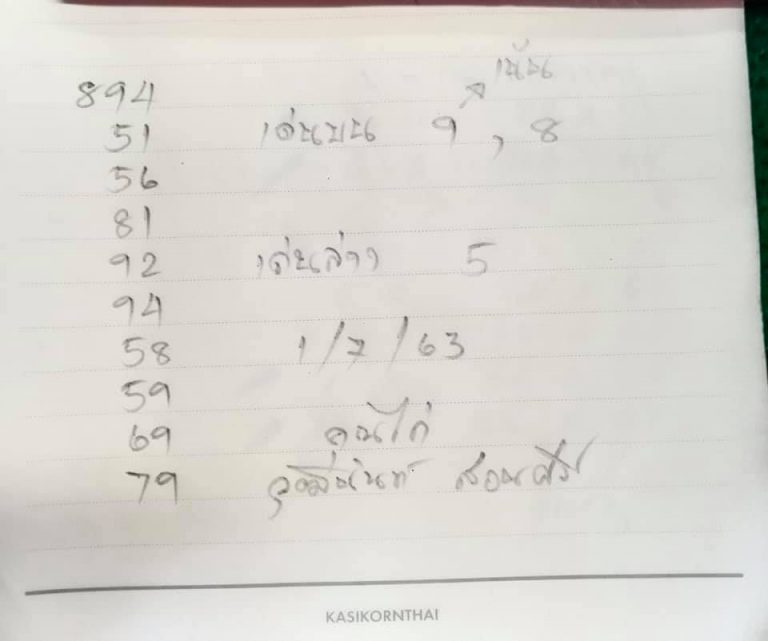 เน้น
894
51 เด่นบน 9 , 8
56
81
92 เด่นล่าง 5
94
58 1/7/63
59
69 คุณไก่
79
KASIKORNTHAI